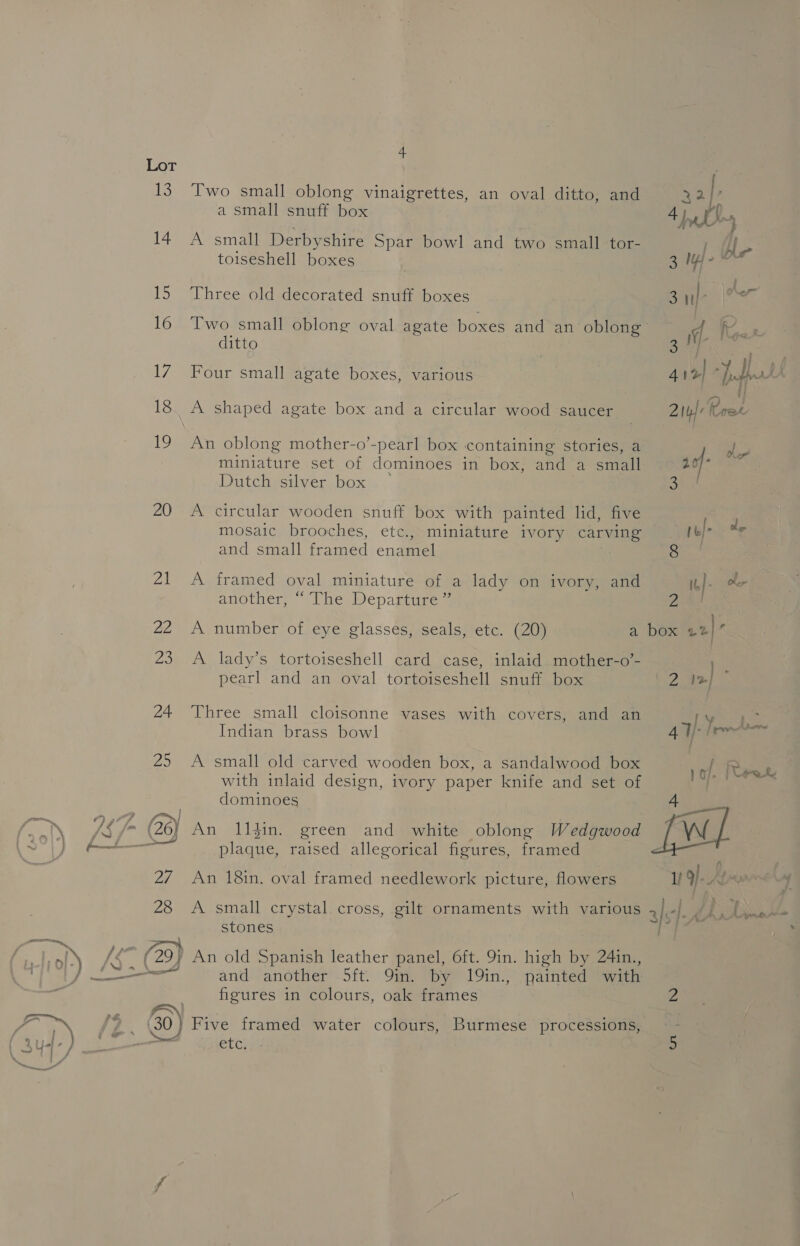 4
Lot
13 Two small oblong vinaigrettes, an oval ditto, and 22/-
a small snuff box 4
14 A small Derbyshire Spar bowl and two small tor-
toiseshell boxes 3 14/-
15 Three old decorated snuff boxes 3 11/-
16 Two small oblong oval agate boxes and an oblong
ditto 3
17 Four small agate boxes, various 4 12/
18 A shaped agate box and a circular wood saucer 2 14/-
19 An oblong mother-o'-pearl box containing stories, a
miniature set of dominoes in box, and a small 20/- do
Dutch silver box 3
20 A circular wooden snuff box with painted lid, five
mosaic brooches, etc., miniature ivory carving 16/- do
and small framed enamel 8
21 A framed oval miniature of a lady on ivory, and do
another, “ The Departure ” 2
22 A number of eye glasses, seals, etc. (20) a box 22/-
23 A lady's tortoiseshell card case, inlaid mother-o'-
pearl and an oval tortoiseshell snuff box 2 12/
24 Three small cloisonne vases with covers, and an
Indian brass bowl 4 7/-
25 A small old carved wooden box, a sandalwood box
with inlaid design, ivory paper knife and set of 10/-
dominoes 4
26 An 11½in. green and white oblong Wedgwood
plaque, raised allegorical figures, framed
27 An 18in. oval framed needlework picture, flowers
28 A small crystal cross, gilt ornaments with various
stones
29 An old Spanish leather panel, 6ft. 9in. high by 24in.,
and another 5ft. 9in. by 19in., painted with
figures in colours, oak frames 2
30 Five framed water colours, Burmese processions,
etc. 5